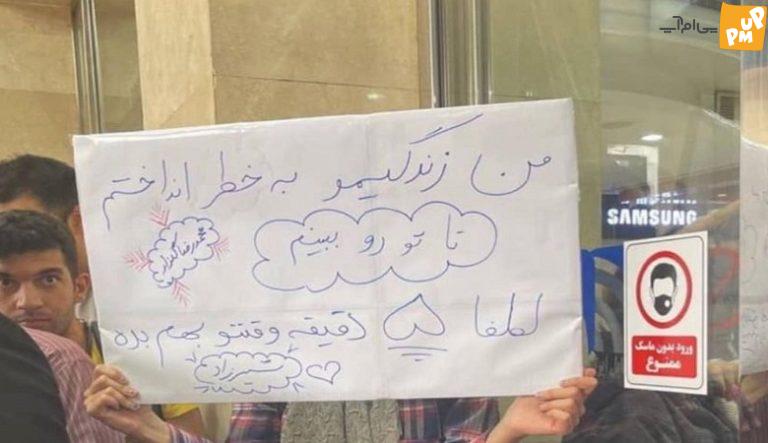 پی‌ام‌آپ
PM UP
من زندگیمو به خطر انداختم
تا تو رو ببینم
محمدرضا گلزار
لطفا ۵ دقیقه وقتتو بهم بده
SAMSUNG
ورود بدون ماسک
ممنوع